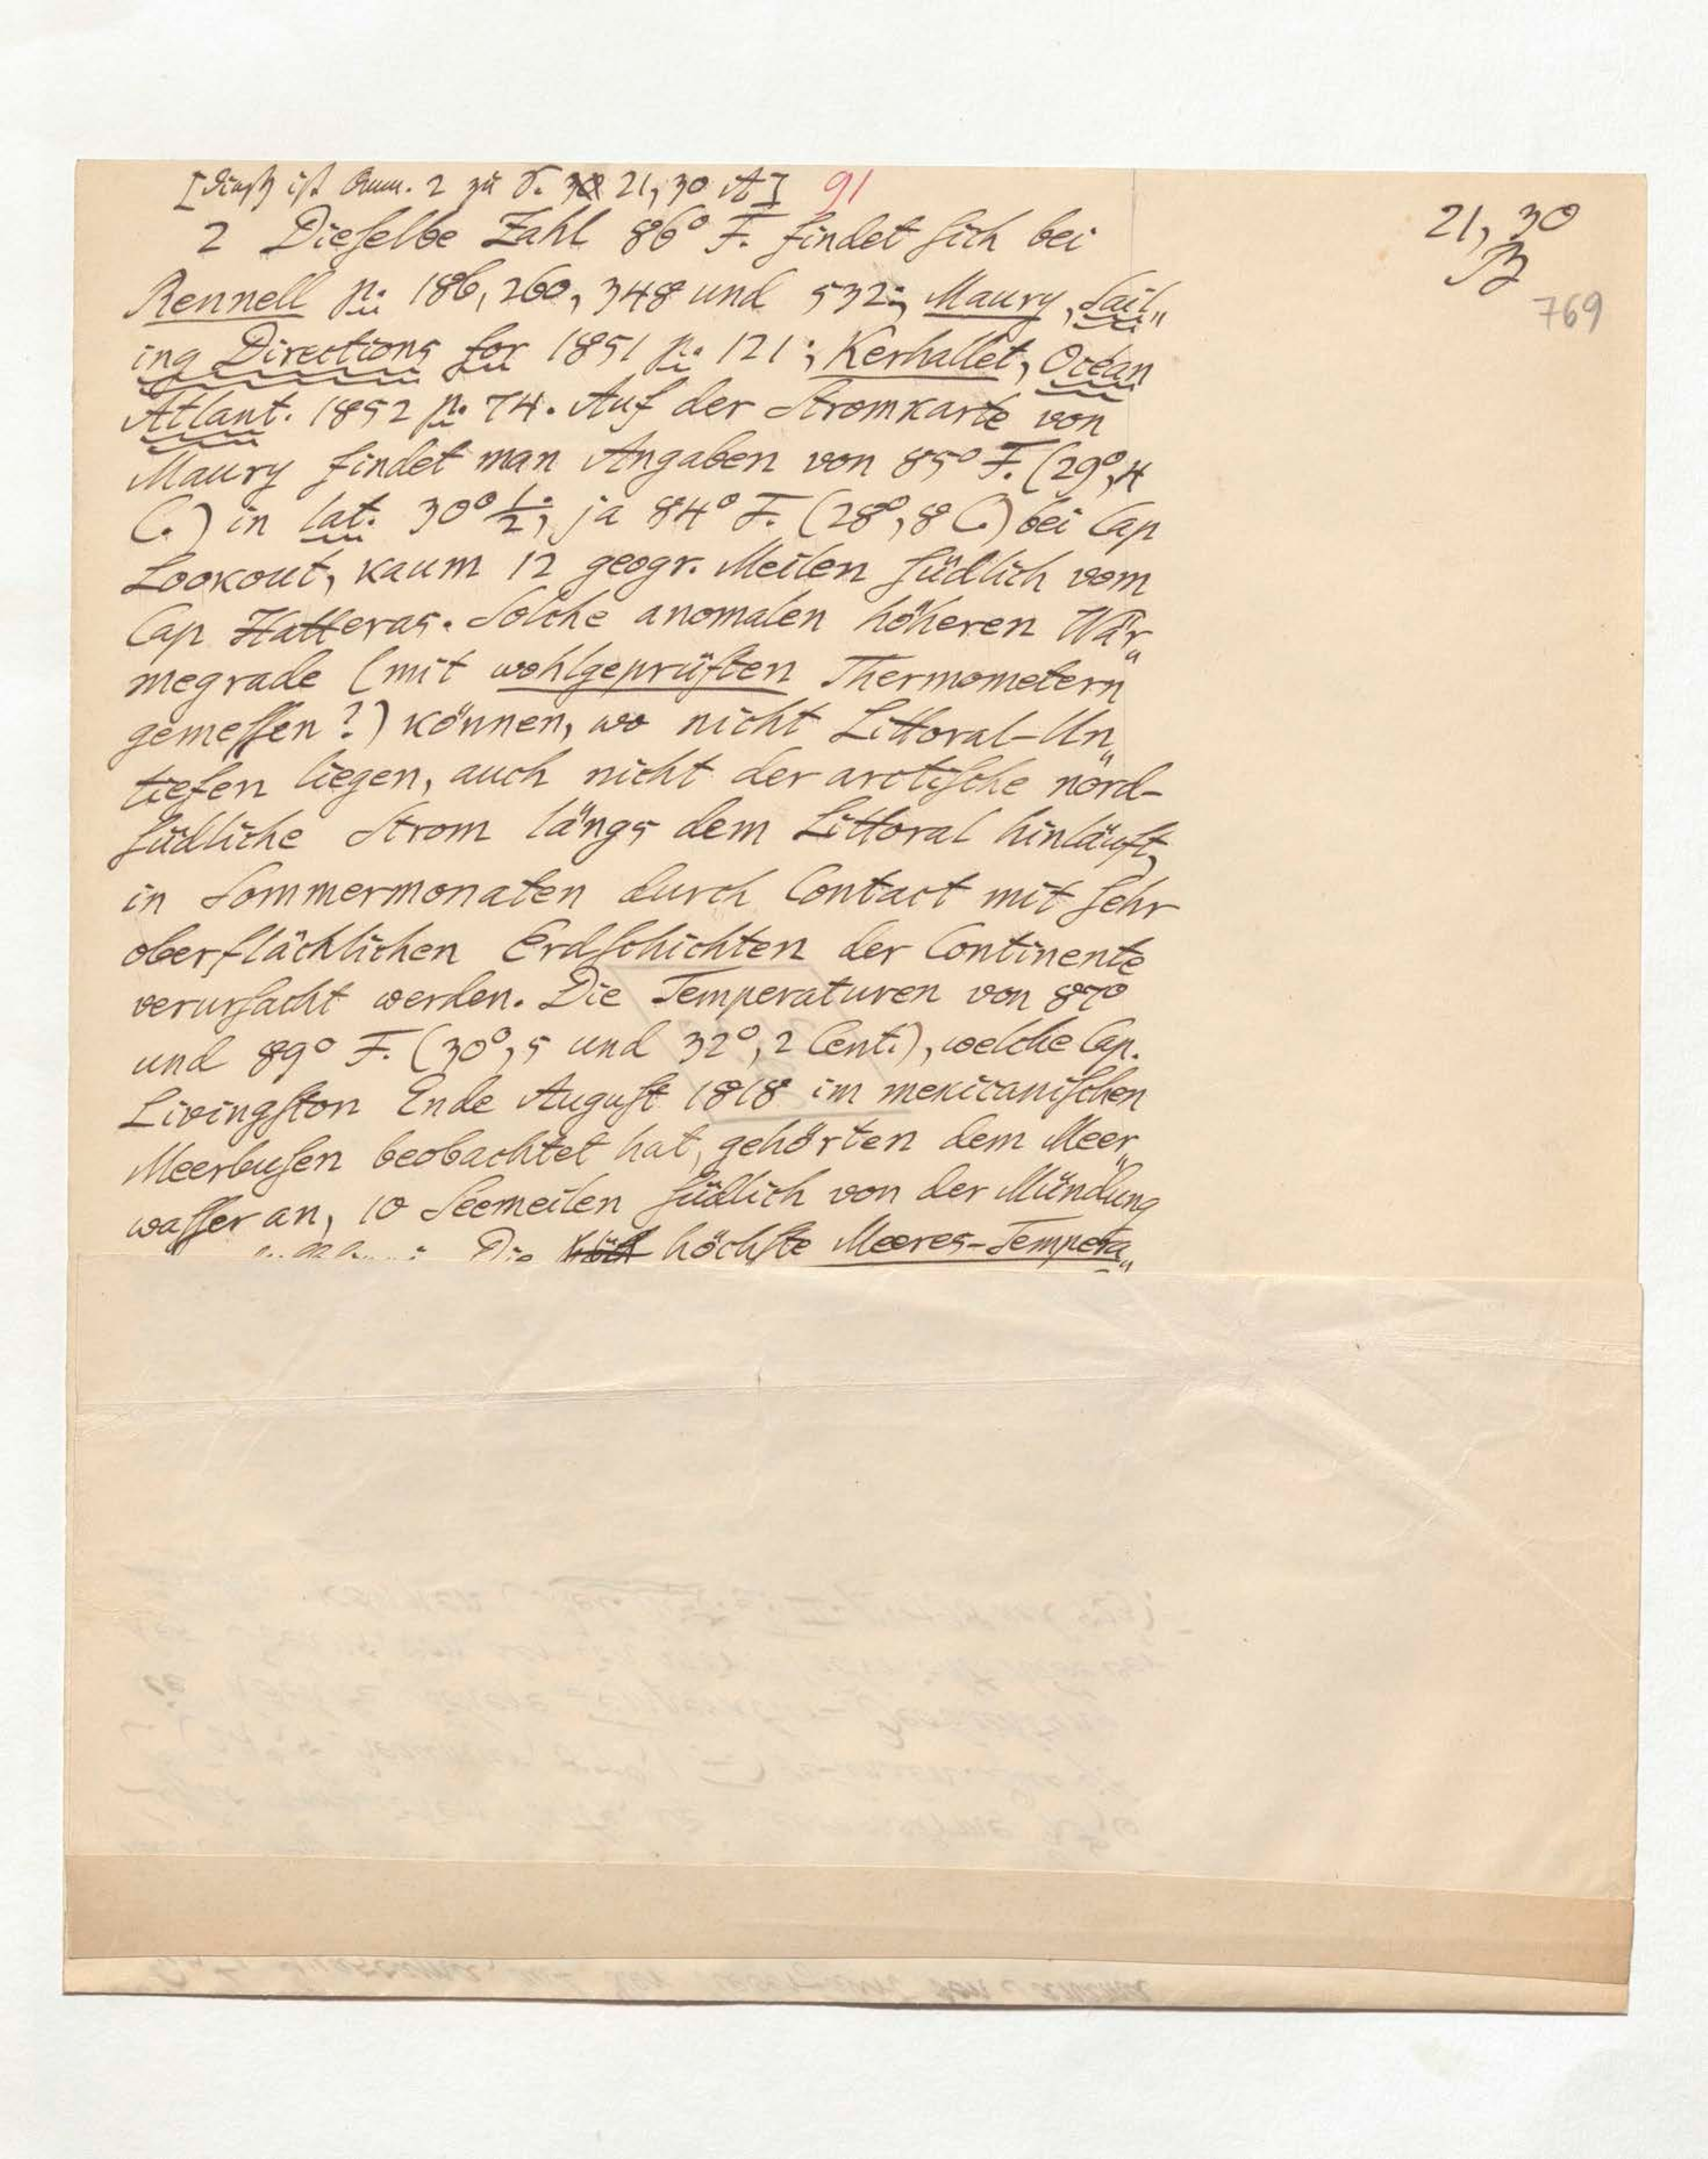 [dieß ist Anm. 2 zu S. 21,30 A] 91
21,30
B
769
2 Dieſelbe Zahl 86° F. findet ſich bei
Rennell p. 186, 260, 348 und 532; Maury, Sail„
ing Directions for 1851 p. 121; Kerhallet, Océan
Atlant. 1852 p. 74. Auf der Stromkarte von
Maury findet man Angaben von 85° F. (29°,4
C.) in lat. 30° ½, ja 84° F. (28°,8 C.) bei Cap
Lookout, kaum 12 geogr. Meilen ſüdlich vom
Cap Hatteras. Solche anomalen höheren Wär„
megrade (mit wohlgeprüften Thermometern
gemeſſen?) können, wo nicht Littoral-Un„
tiefen liegen, auch nicht der arctiſche nord-
ſüdliche Strom längs dem Littoral hinläuft,
in Sommermonaten durch Contact mit ſehr
oberflächlichen Erdſchichten der Continente
verurſacht werden. Die Temperaturen von 87°
und 89° F. (30°,5 und 32°,2 Cent.), welche Cap.
Livingſton Ende Auguſt 1818 im mexicaniſchen
Meerbuſen beobachtet hat, gehörten dem Meer„
waſſer an, 10 Seemeilen ſüdlich von der Mündung
Die höchſte Meeres-Tempera„